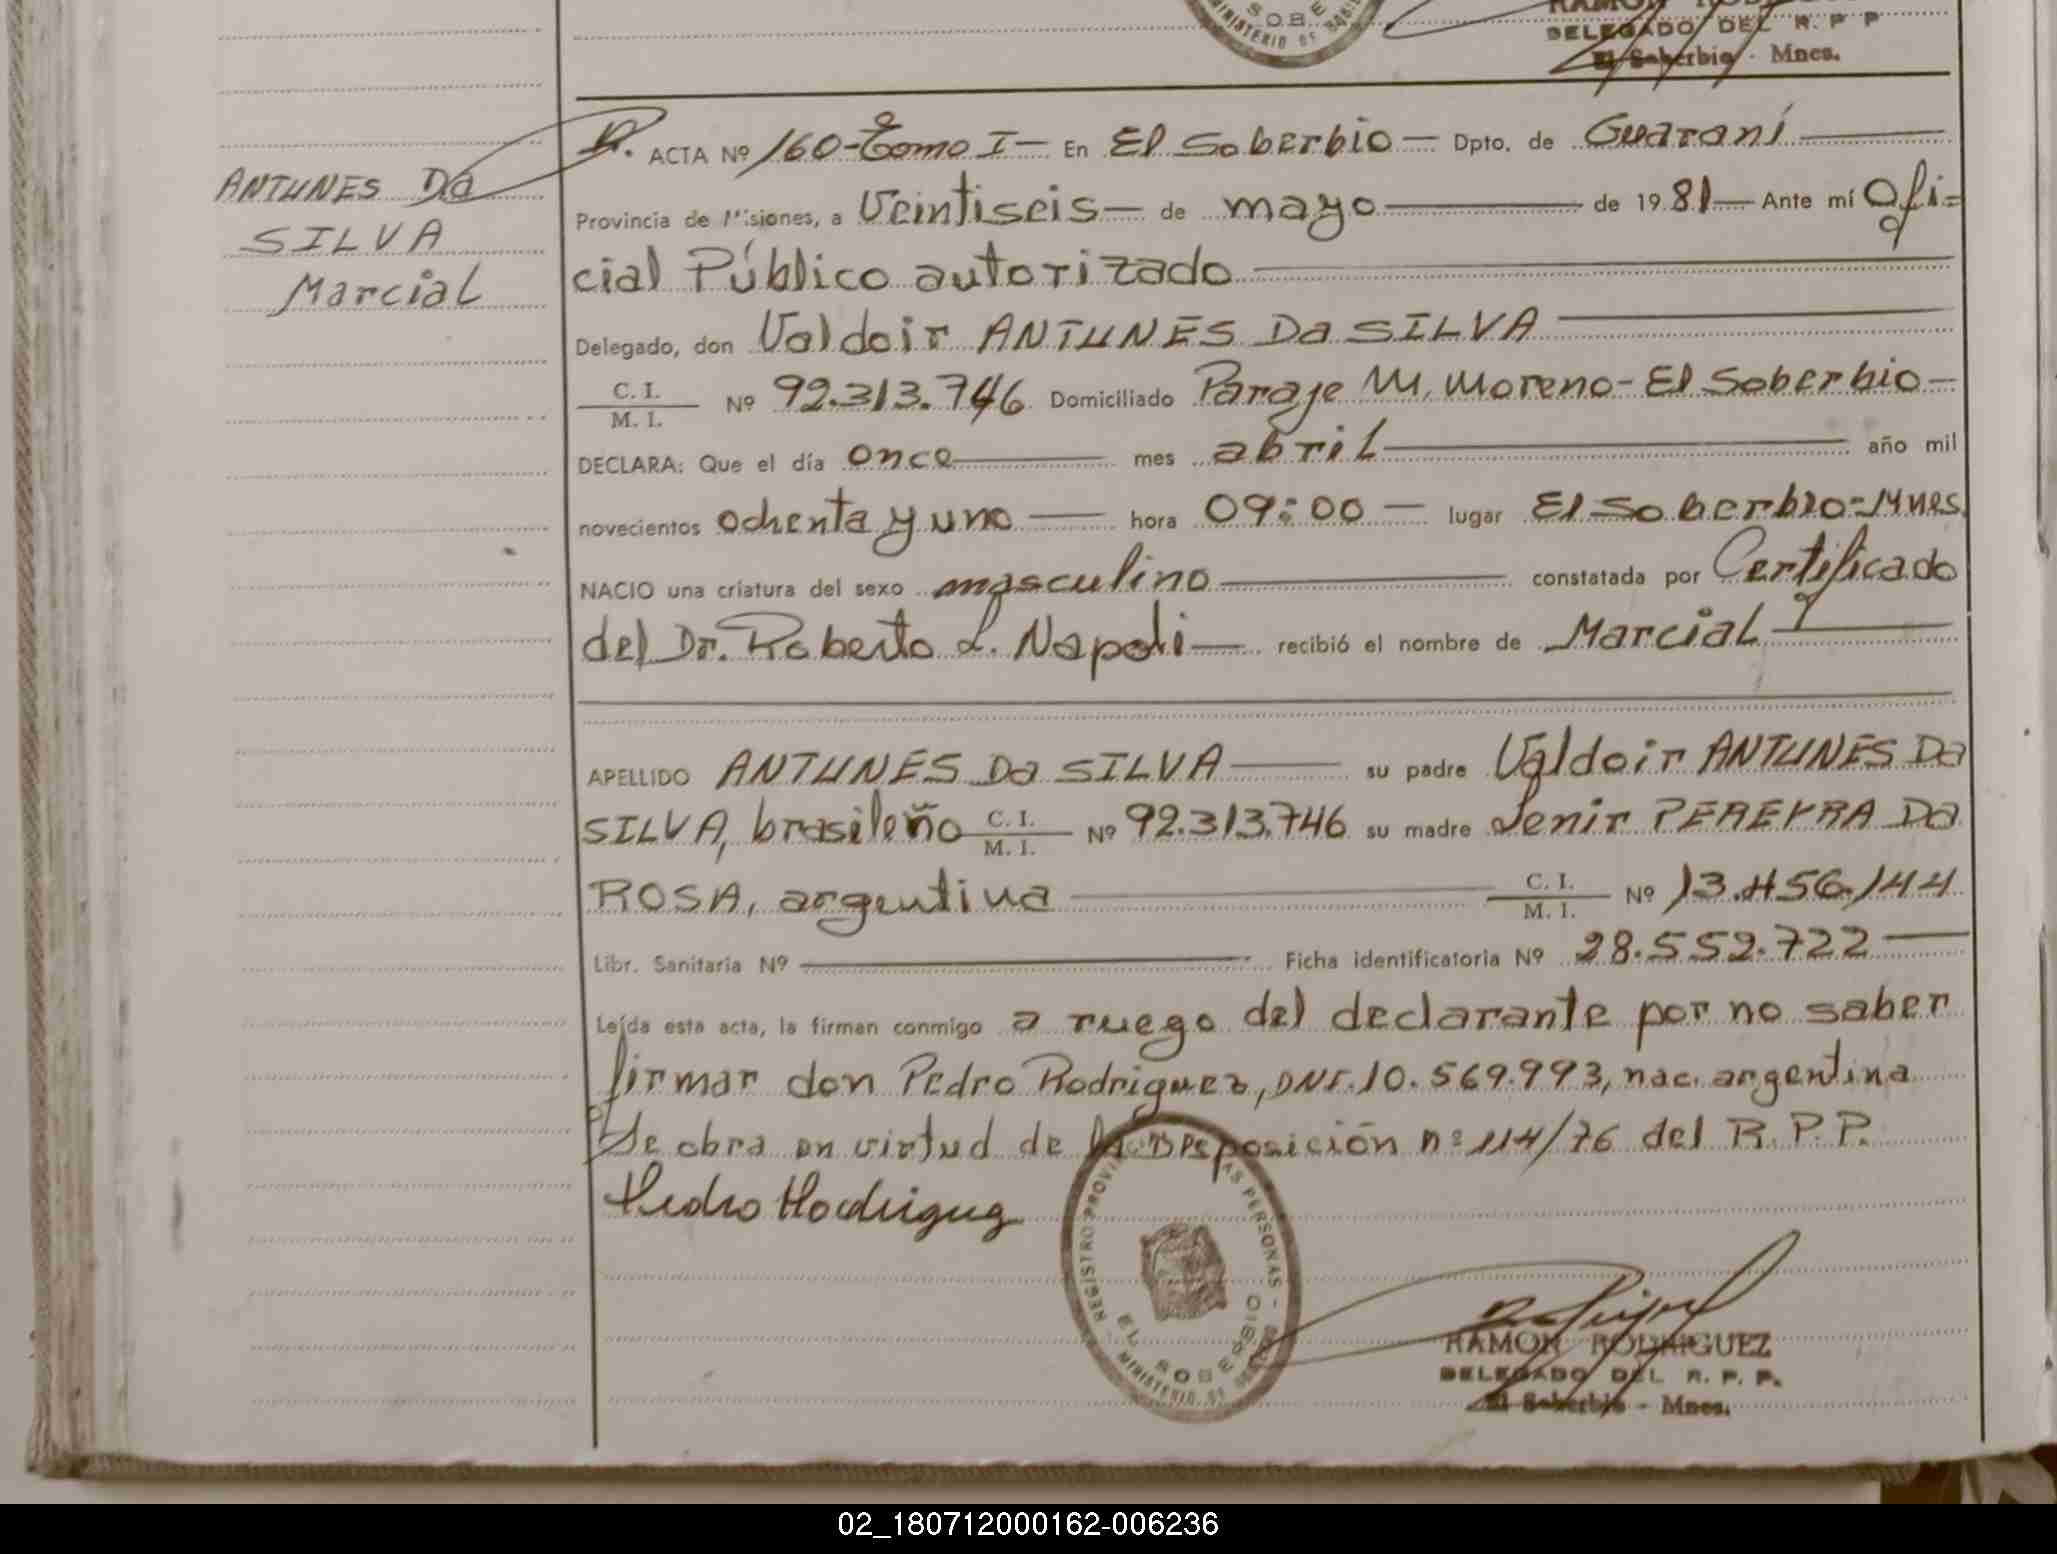 S O B E
O.B.
MINISTERIO DE GOB
RAMON RODRIGUEZ
DELEGADO DEL R. P. P
El Soberbio - Mnes.
ANTUNES Da
SILVA
Marcial
ACTA Nº 160-Tomo I- En El Soberbio- Dpto. de Guaraní
Provincia de Misiones, a Veintiseis- de mayo de 1981- Ante mí Ofi=
cial Público autorizado
Delegado, don Valdoir ANTUNES Da SILVA
C. I.
M. I. Nº 92.313.746 Domiciliado Paraje M. Moreno- El Soberbio-
DECLARA: Que el día once mes abril año mil
novecientos ochenta y uno hora 09:00 - lugar El Soberbio=Mnes.
NACIO una criatura del sexo masculino constatada por Certificado
del Dr. Roberto L. Napoli- recibió el nombre de Marcial
APELLIDO ANTUNES Da SILVA su padre Valdoir ANTUNES Da
SILVA, brasileño C. I. M. I. Nº 92.313.746 su madre Lenir PEREYRA Da
ROSA, argentina C. I. M. I. Nº 13.456.144
Libr. Sanitaria Nº Ficha identificatoria Nº 28.552.722
Leída esta acta, la firman conmigo a ruego del declarante por no saber
firmar don Pedro Rodriguez, DNI. 10.569.993, nac. argentina
Se obra en virtud de la Disposición nº 114/76 del R.P.P.
Pedro Rodriguez
REGISTRO PROVINCIAL DE LAS PERSONAS - MINISTERIO DE GOBIERNO
EL SOBERBIO
RAMON RODRIGUEZ
DELEGADO DEL R. P. P.
El Soberbio - Mnes.
02_180712000162-006236